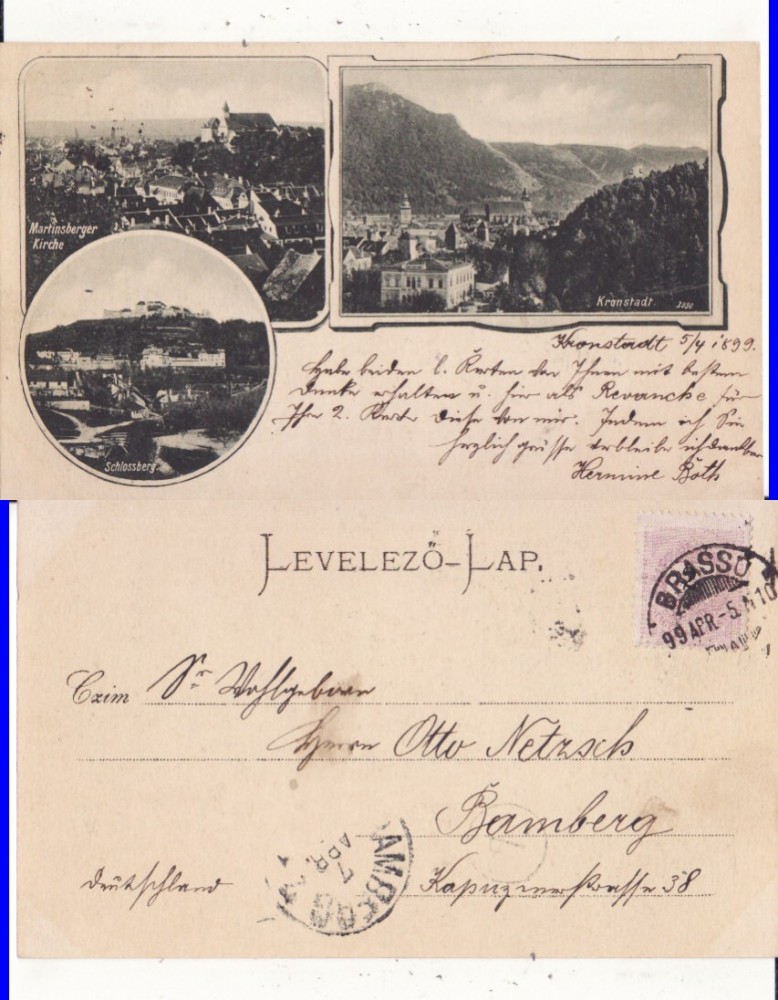 Martinsberger
Kirche
Kronstadt.
2090
Schlossberg.
Kronstadt 5/4 1899.
Habe beiden l. Karten von Ihnen mit bestem
Danke erhalten u. hier als Revanche für
Ihre 2. Karte diese von mir. Indem ich Sie
herzlich grüsse verbleibe ich dankbar
Hermine Both
LEVELEZŐ-LAP.
BRASSÓ
99 APR-5
Czim Sr Wohlgeboren
Herrn Otto Netzsch
Bamberg
Deutschland Kapuzinerstrasse 38
BAMBERG
7
APR